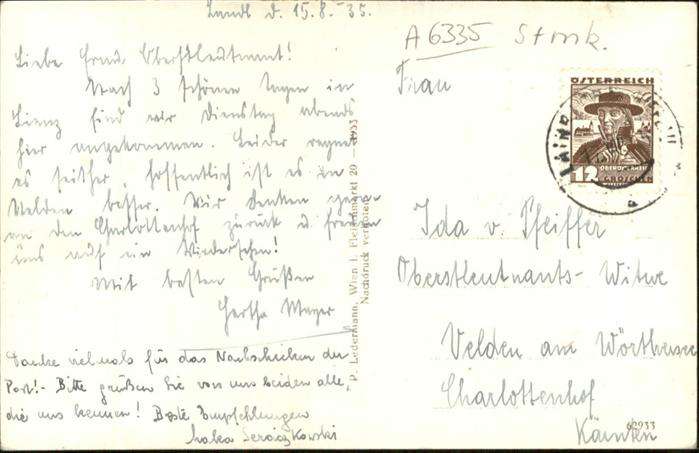 Landl d. 15.8.35.
Liebe Frau Oberstleutnant!
Nach 3 schönen Tagen in
Lienz sind wir Dienstag abends
hier angekommen. Leider regnet
es seither, hoffentlich ist es in
Velden besser. Wir denken gerne
an den Charlottenhof zurück u. freuen
uns auf ein Wiedersehen!
Mit besten Grüßen
Hertha Mayer
Danke vielmals für das Nachschicken der
Post!- Bitte grüßen Sie von uns beiden alle,
die uns kennen! Beste Empfehlungen
P. Ledermann, Wien I, Fleischmarkt 20 1933
Nachdruck verboten
A6335
Frau
ÖSTERREICH
12 GROSCHEN
Ida v. Pfeiffer
Oberstleutnants-Witwe
Velden am Wörthersee
Charlottenhof
Kärnten
62933